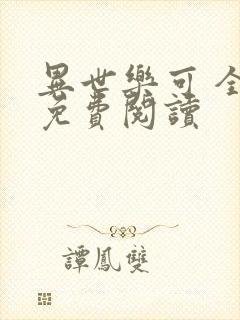 異世樂可全
免費閱讀
譚鳳雙